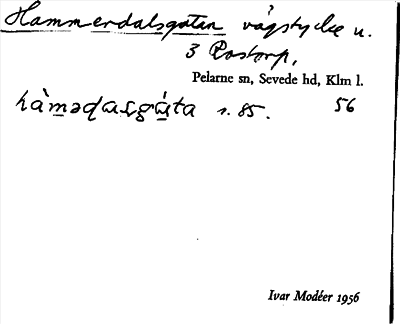 Hammerdalsgatan vägstycke u.
3 Rostorp,
Pelarne sn, Sevede hd, Klm l.
hàmədasgáta s. 85. 56
Ivar Modéer 1956